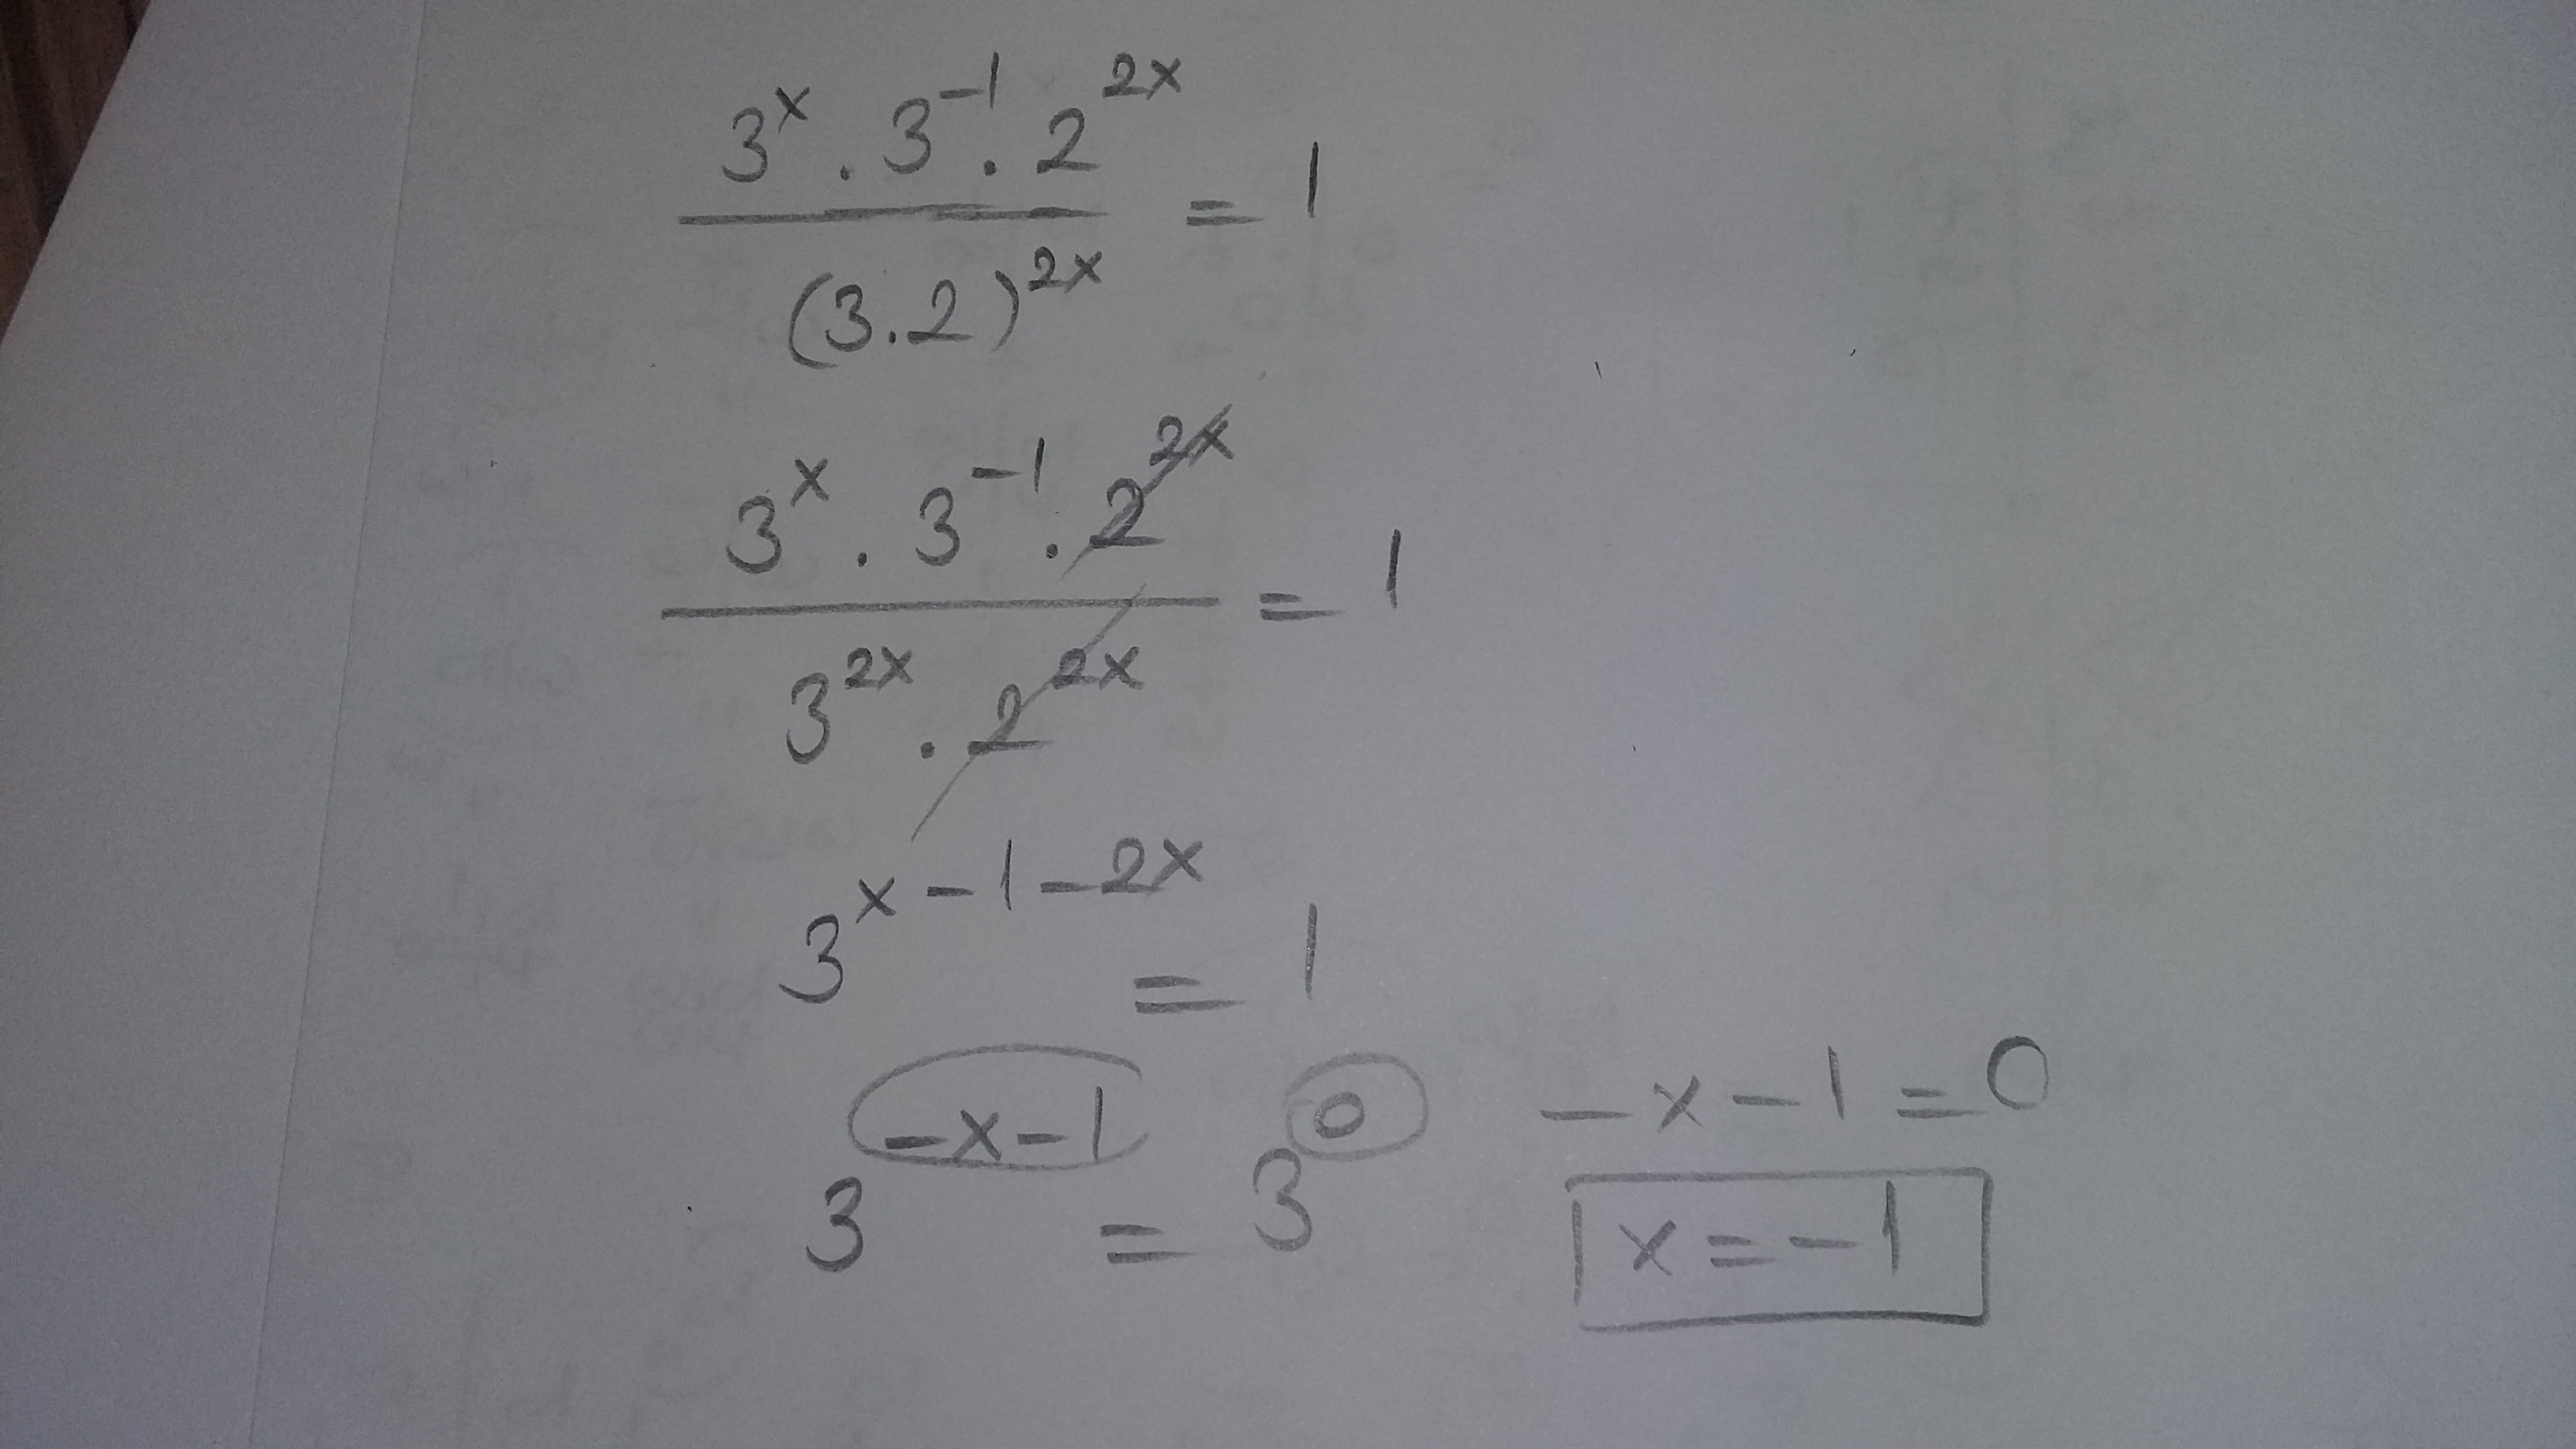 3^x . 3^-1 . 2^2x / (3.2)^2x = 1
3^x . 3^-1 . 2^2x / 3^2x . 2^2x = 1
3^x-1-2x = 1
3^-x-1 = 3^0   -x-1=0
x=-1